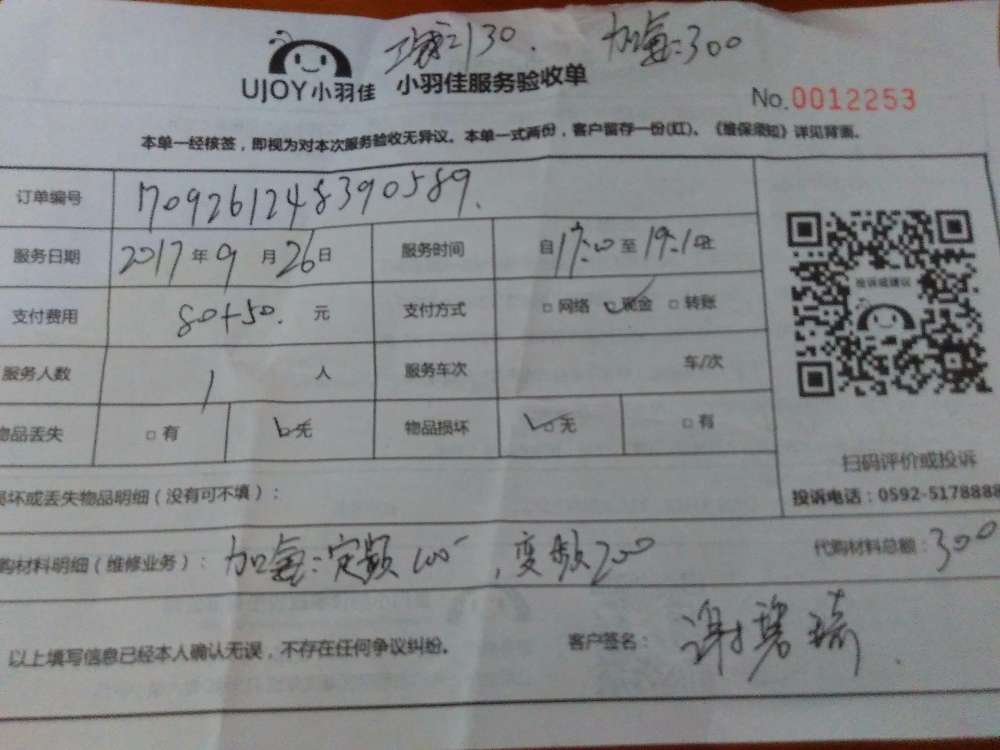 130. 加氟:300
UJOY小羽佳 小羽佳服务验收单
No.0012253
本单一经核签，即视为对本次服务验收无异议。本单一式两份，客户留存一份(红)。《维保须知》详见背面。
订单编号 709261248390589.
服务日期 2017年9月26日 服务时间 自17:0至19:10止
支付费用 80+50. 元 支付方式 □网络 现金 □转账
服务人数 1 人 服务车次 车/次
物品丢失 □有 无 物品损坏 □无 □有
投诉或建议
扫码评价或投诉
损坏或丢失物品明细（没有可不填）:
投诉电话：0592-5178888
购材料明细（维修业务）: 加氟:定频100, 变频200 代购材料总额：300
以上填写信息已经本人确认无误，不存在任何争议纠纷。 客户签名： 谢碧琦